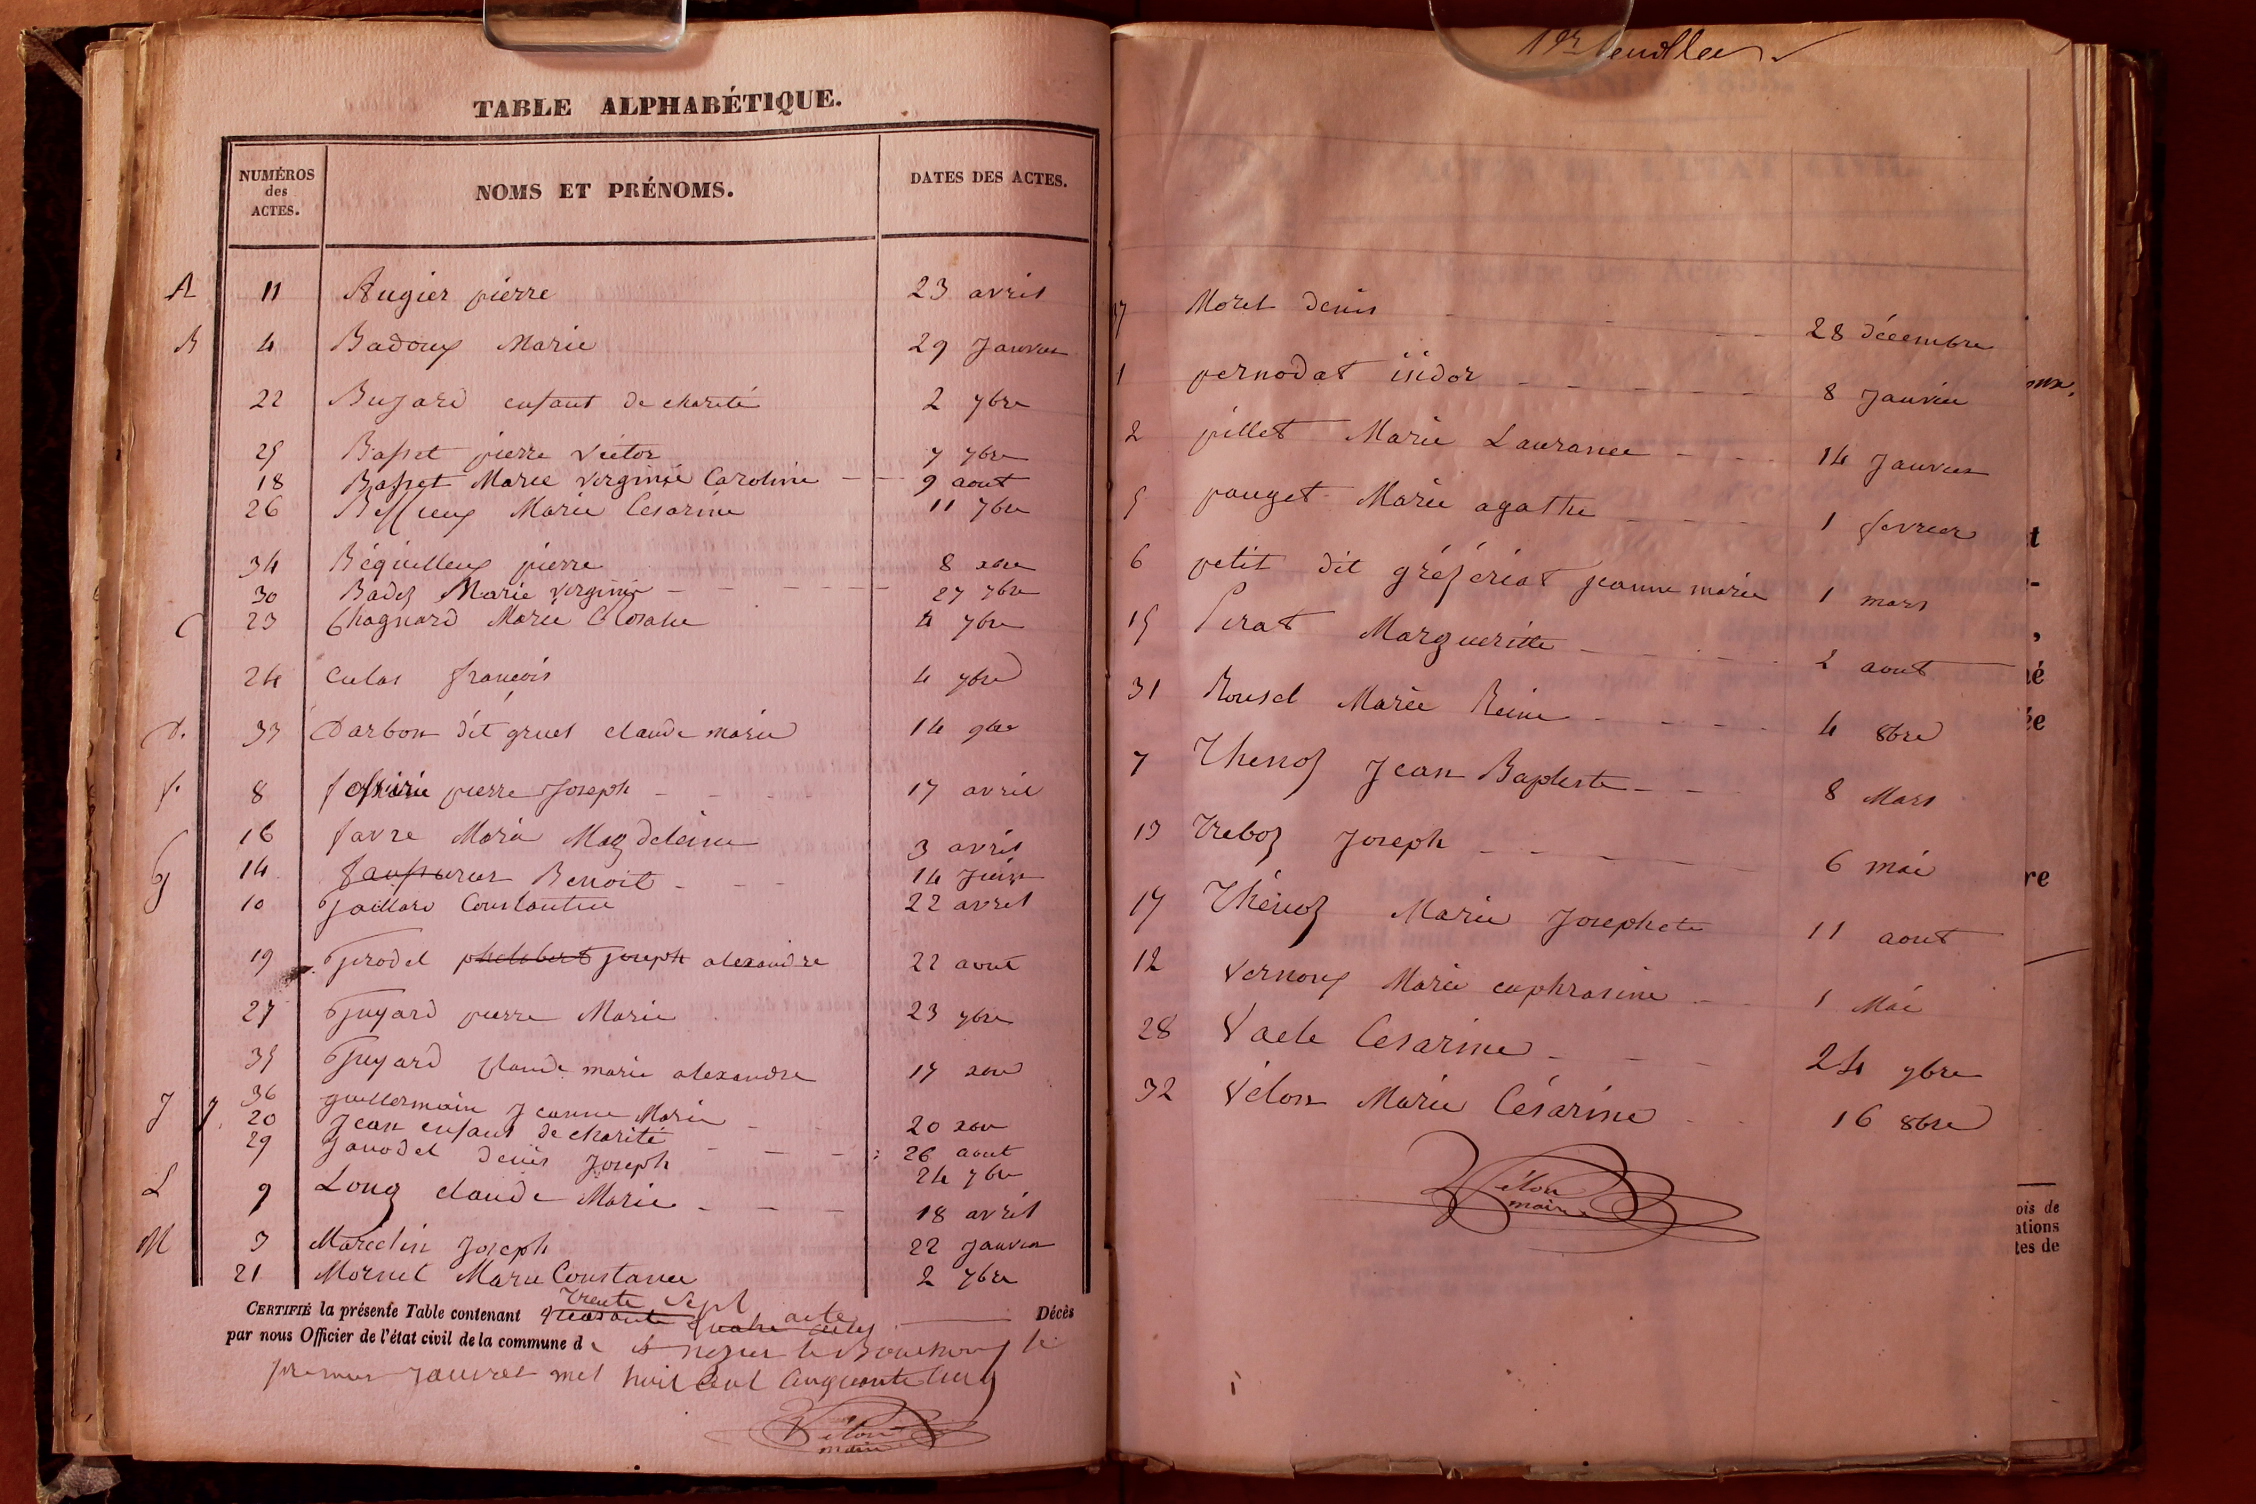 TABLE ALPHABÉTIQUE.
NUMÉROS des ACTES. NOMS ET PRÉNOMS. DATES DES ACTES.
A 11 Augier pierre 23 avril
B 4 Badoux Marie 29 Janvier
22 Bugard enfant de charité 2 7bre
25 Basset pierre victor 7 7bre
18 Basset Marie virginie Caroline 9 aout
26 Marie Cesarine 11 7bre
34 Béguilleux pierre 8 xbre
30 Badez Marie virginie 27 7bre
C 23 Chagnard Marie 4 7bre
24 Culas françois 4 7bre
D. 33 Darbon dit gruet claude marie 14 9bre
f. 8 pierre Joseph 17 avril
16 favre Marie Magdeleine 3 avril
14 Benoit 14 Juin
G 10 Gaillard Constantin 22 avril
19 Grodel philibert Joseph alexandre 22 aout
27 Guyard pierre Marie 23 7bre
35 Guyard Claude marie alexandre 17 xbre
36 guillermain Jeanne Marie 20 xbre
J J. 20 Jean enfant de charité 26 aout
29 Janodet denis Joseph 24 7bre
L 9 Long claude Marie 18 avril
M 3 Marechin Joseph 22 Janvier
21 Mornet Marie Constance 2 7bre
trente Sept acte
CERTIFIÉ la présente Table contenant quarante quatre actes Décès
par nous Officier de l'état civil de la commune de St nizier le Bouchoux le
premier Janvier mil huit Cent Cinquante
Velon
maire
1er feuillet
37 Moret denis 28 décembre
1 pernodat isidor 8 Janvier
2 pillet Marie Laurance 14 Janvier
5 pauget Marie agathe 1 fevrier
6 petit dit gréfériat jeanne marie 1 mars
15 Perat Margueritte 2 aout
31 Rousel Marie Reine 4 8bre
7 Thenoz Jean Baptiste 8 Mars
13 Treboz Joseph 6 mai
17 Thénoz Marie Josephete 11 aout
12 Vernoux Marie euphrasine 1 Mai
28 Vacle Cesarine 24 7bre
32 Vélon Marie Césarine 16 8bre
Vélon
maire
ois de
ations
tes de